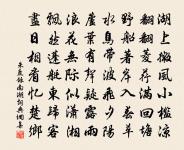 湖上微風小檻涼
翻翻菱荇滿回塘
野船著岸入春草
水鳥帶波飛夕陽
蘆葉有聲疑霧雨
浪花無際似瀟湘
飄然蓬艇東歸客
盡日相看憶楚鄉
朱慶餘詩南湖